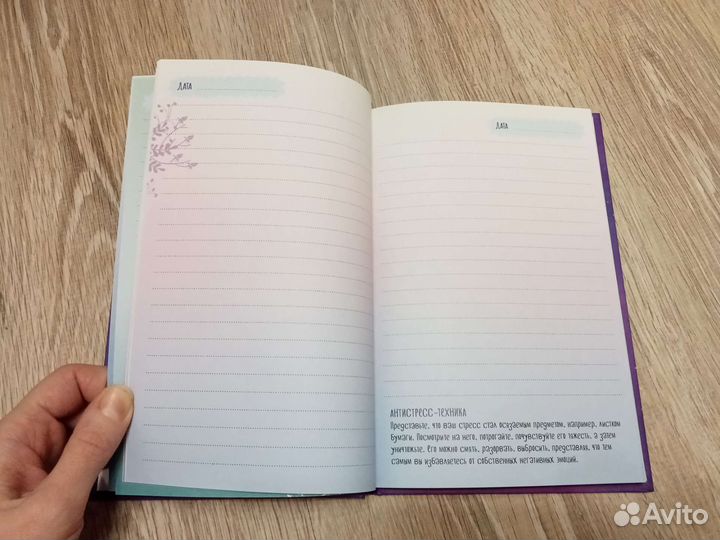 Дата
Дата
Антистресс-техника
Представьте, что ваш стресс стал осязаемым предметом, например, листком
бумаги. Посмотрите на него, потрогайте, почувствуйте его тяжесть, а затем
уничтожьте. Его можно смять, разорвать, выбросить, представляя, что тем
самым вы избавляетесь от собственных негативных эмоций.
Avito